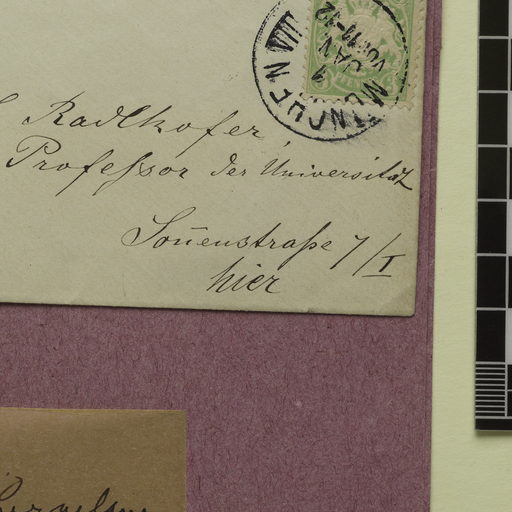 MÜNCHEN VIII
1 JAN
VOR.11-12
Radlkofer,
Professor der Universität
Soñenstraße 7/I
hier